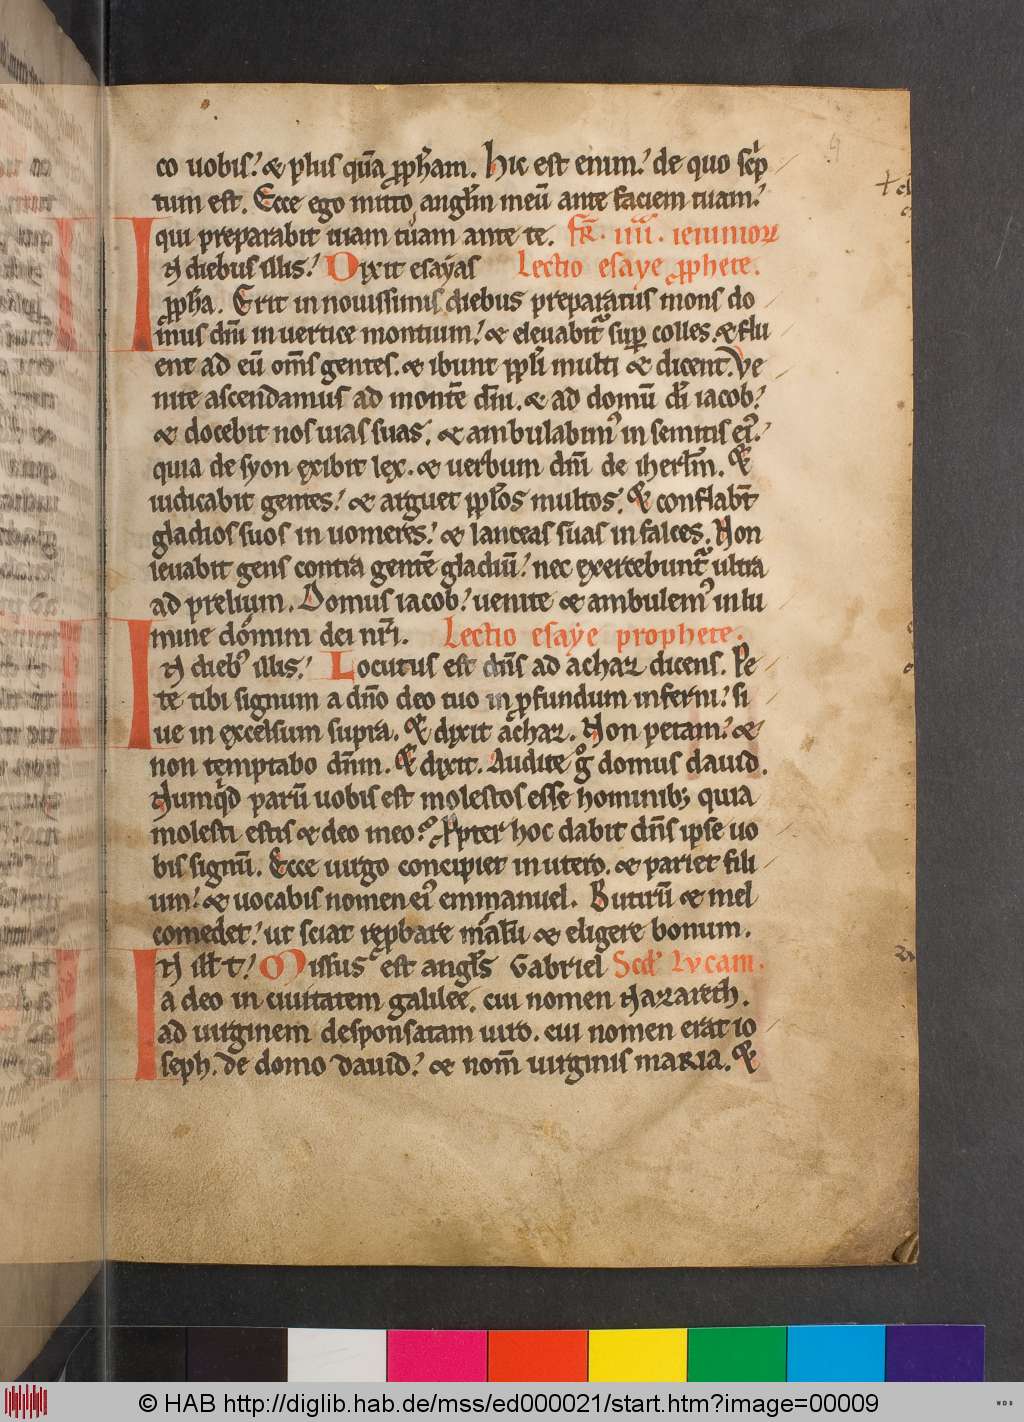 co uobis! & plus quā ꝓph̄am. Hic est enim! de quo sc̄p
tum est. Ecce ego mitto angl̄m meū ante faciem tuam!
qui preparabit uiam tuam ante te. fr̄. iiii. ieiuniorꝝ
In diebus illis! Dixit esayas Lectio esaye ꝓphete.
ꝓph̄a. Erit in nouissimis diebus preparatus mons do
mus dn̄i in uertice montium! & eleuabitᷣ suꝑ colles. & flu
ent ad eū om̄s gentes. & ibunt ppl̄i multi & dicent. Ve
nite ascendamus ad montē dn̄i. & ad domū dī iacob!
& docebit nos uias suas. & ambulabimꝰ in semitis eiꝰ!
quia de syon exibit lex. & uerbum dn̄i de iherl̄m. &
iudicabit gentes! & arguet ppl̄os multos. & conflabt̄
gladios suos in uomeres! & lanceas suas in falces. Non
leuabit gens contra gentē gladiū! nec exercebuntᷣ ultra
ad prelium. Domus iacob! uenite & ambulemꝰ in lu
mine domini dei nr̄i. Lectio esaye prophete.
In diebꝰ illis! Locutus est dn̄s ad achaz dicens. Pe
te tibi signum a dn̄o deo tuo in ꝓfundum inferni! si
ue in excelsum supra. & dixit achaz. Non petam! &
non temptabo dn̄m. & dixit. Audite gͦ domus dauid.
Numqͥd parū uobis est molestos esse hominibꝫ quia
molesti estis & deo meo? Ꝓpter hoc dabit dn̄s ipse uo
bis signū. Ecce uirgo concipiet in utero. & pariet fili
um! & uocabis nomen eiꝰ emmanuel. Butirū & mel
comedet! ut sciat reꝓbare malū & eligere bonum.
In ill̄ t̄! Missus est angl̄s Gabriel Scd̄ Lvcam.
a deo in ciuitatem galilee. cui nomen Nazareth.
ad uirginem desponsatam uiro. cui nomen erat io
seph. de domo dauid! & nom̄ uirginis maria. &
9
© HAB http://diglib.hab.de/mss/ed000021/start.htm?image=00009